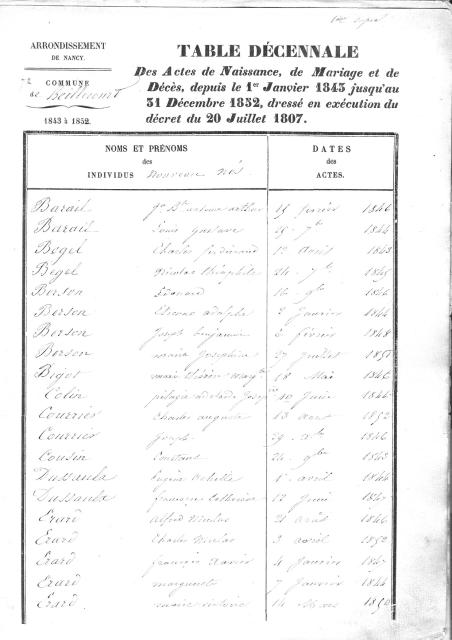 ARRONDISSEMENT
DE NANCY.
COMMUNE
de
1843 à 1852.
TABLE DÉCENNALE
Des Actes de Naissance, de Mariage et de
Décès, depuis le 1er Janvier 1843 jusqu'au
31 Décembre 1852, dressé en exécution du
décret du 20 Juillet 1807.
NOMS ET PRÉNOMS
des
INDIVIDUS nouveau nés
DATES
des
ACTES.
Barail arthur 15 février 1846
Barail Louis Gustave 15 7bre 1844
Begel Charles ferdinand 1er août 1843
Begel Nicolas théophile 24 7bre 1845
Berson Edouard 16 9bre 1846
Berson Etienne adolphe 2 Janvier 1844
Berson Joseph benjamin 2 février 1848
Berson maria Josephine 27 Juillet 1851
Bigot marie 18 Mai 1846
Colin pélagie adelaïde 10 Juin 1846
Courrier Charles auguste 13 août 1852
Courrier Joseph 29 1846
Cousin Constant 24 9bre 1843
Dussaulx Eugène Achille 1er avril 1844
Dussaulx françoise Catherine 12 Juin
Erard alfred Nicolas 21 août 1846
Erard Charles Nicolas 3 avril 1852
Erard françois Xavier 4 Janvier
Erard marguerite 7 Janvier 1844
Erard marie 14 Mars 1850